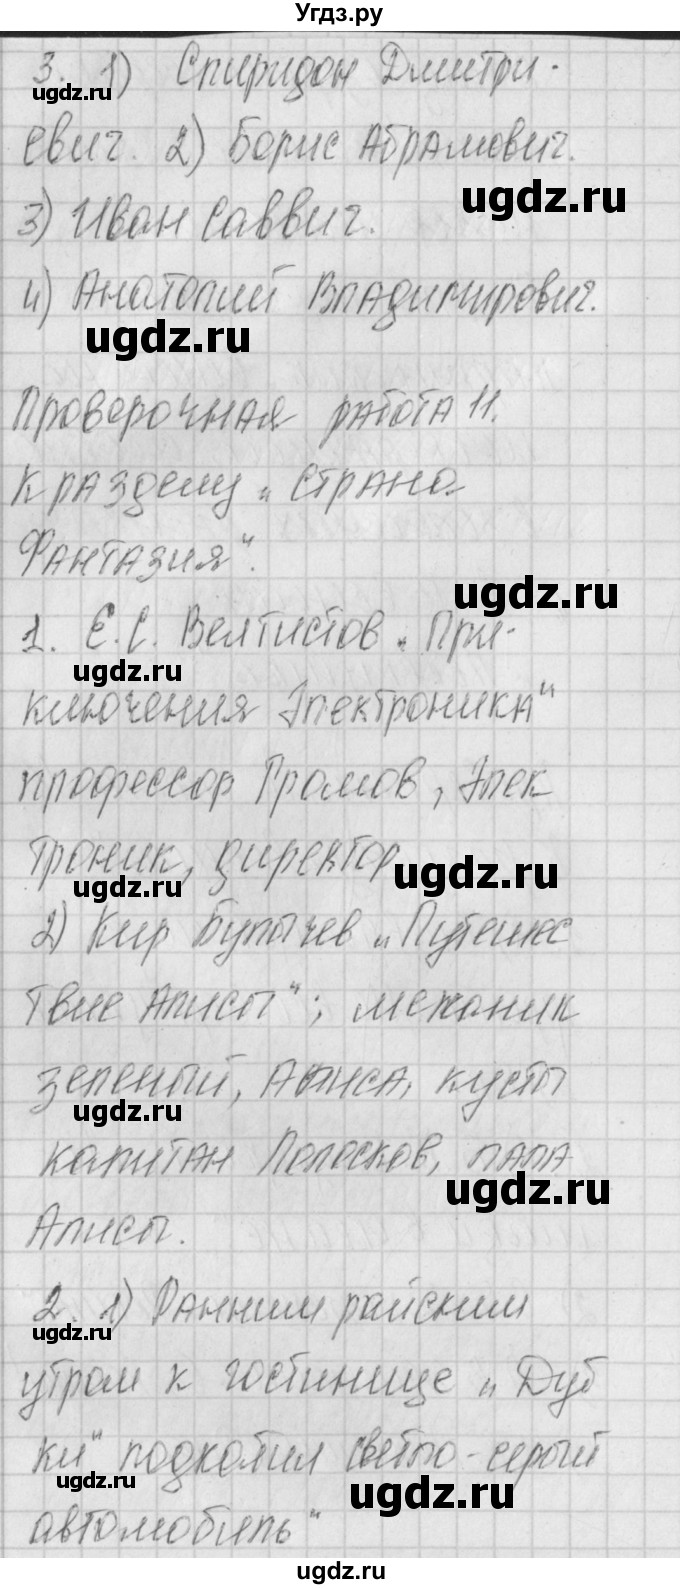 Угдз.ру
3. 1) Спиридон Дмитри-
евич. 2) Борис Абрамович.
ugdz.ru
ugdz.ru
3) Иван Саввич.
4) Анатолий Владимирович.
ugdz.ru
Проверочная работа 11.
К разделу „Страна
Фантазия“.
ugdz.ru
1. Е.С. Велтистов „При-
ugdz.ru
ключения Электроника“
профессор Громов, Элек
троник, директор
ugdz.ru
ugdz.ru
2) Кир Булычев „Путешес
твие Алисы“; механик
зеленый, Алиса, кусты
ugdz.ru
капитан Полосков, папа
ugdz.ru
Алисы.
2. 1) Ранним райским
ugdz.ru
утром к гостинице „Дуб
ки“ подкатил светло-серый
ugdz.ru
ugdz.ru
автомобиль“
ugdz.ru